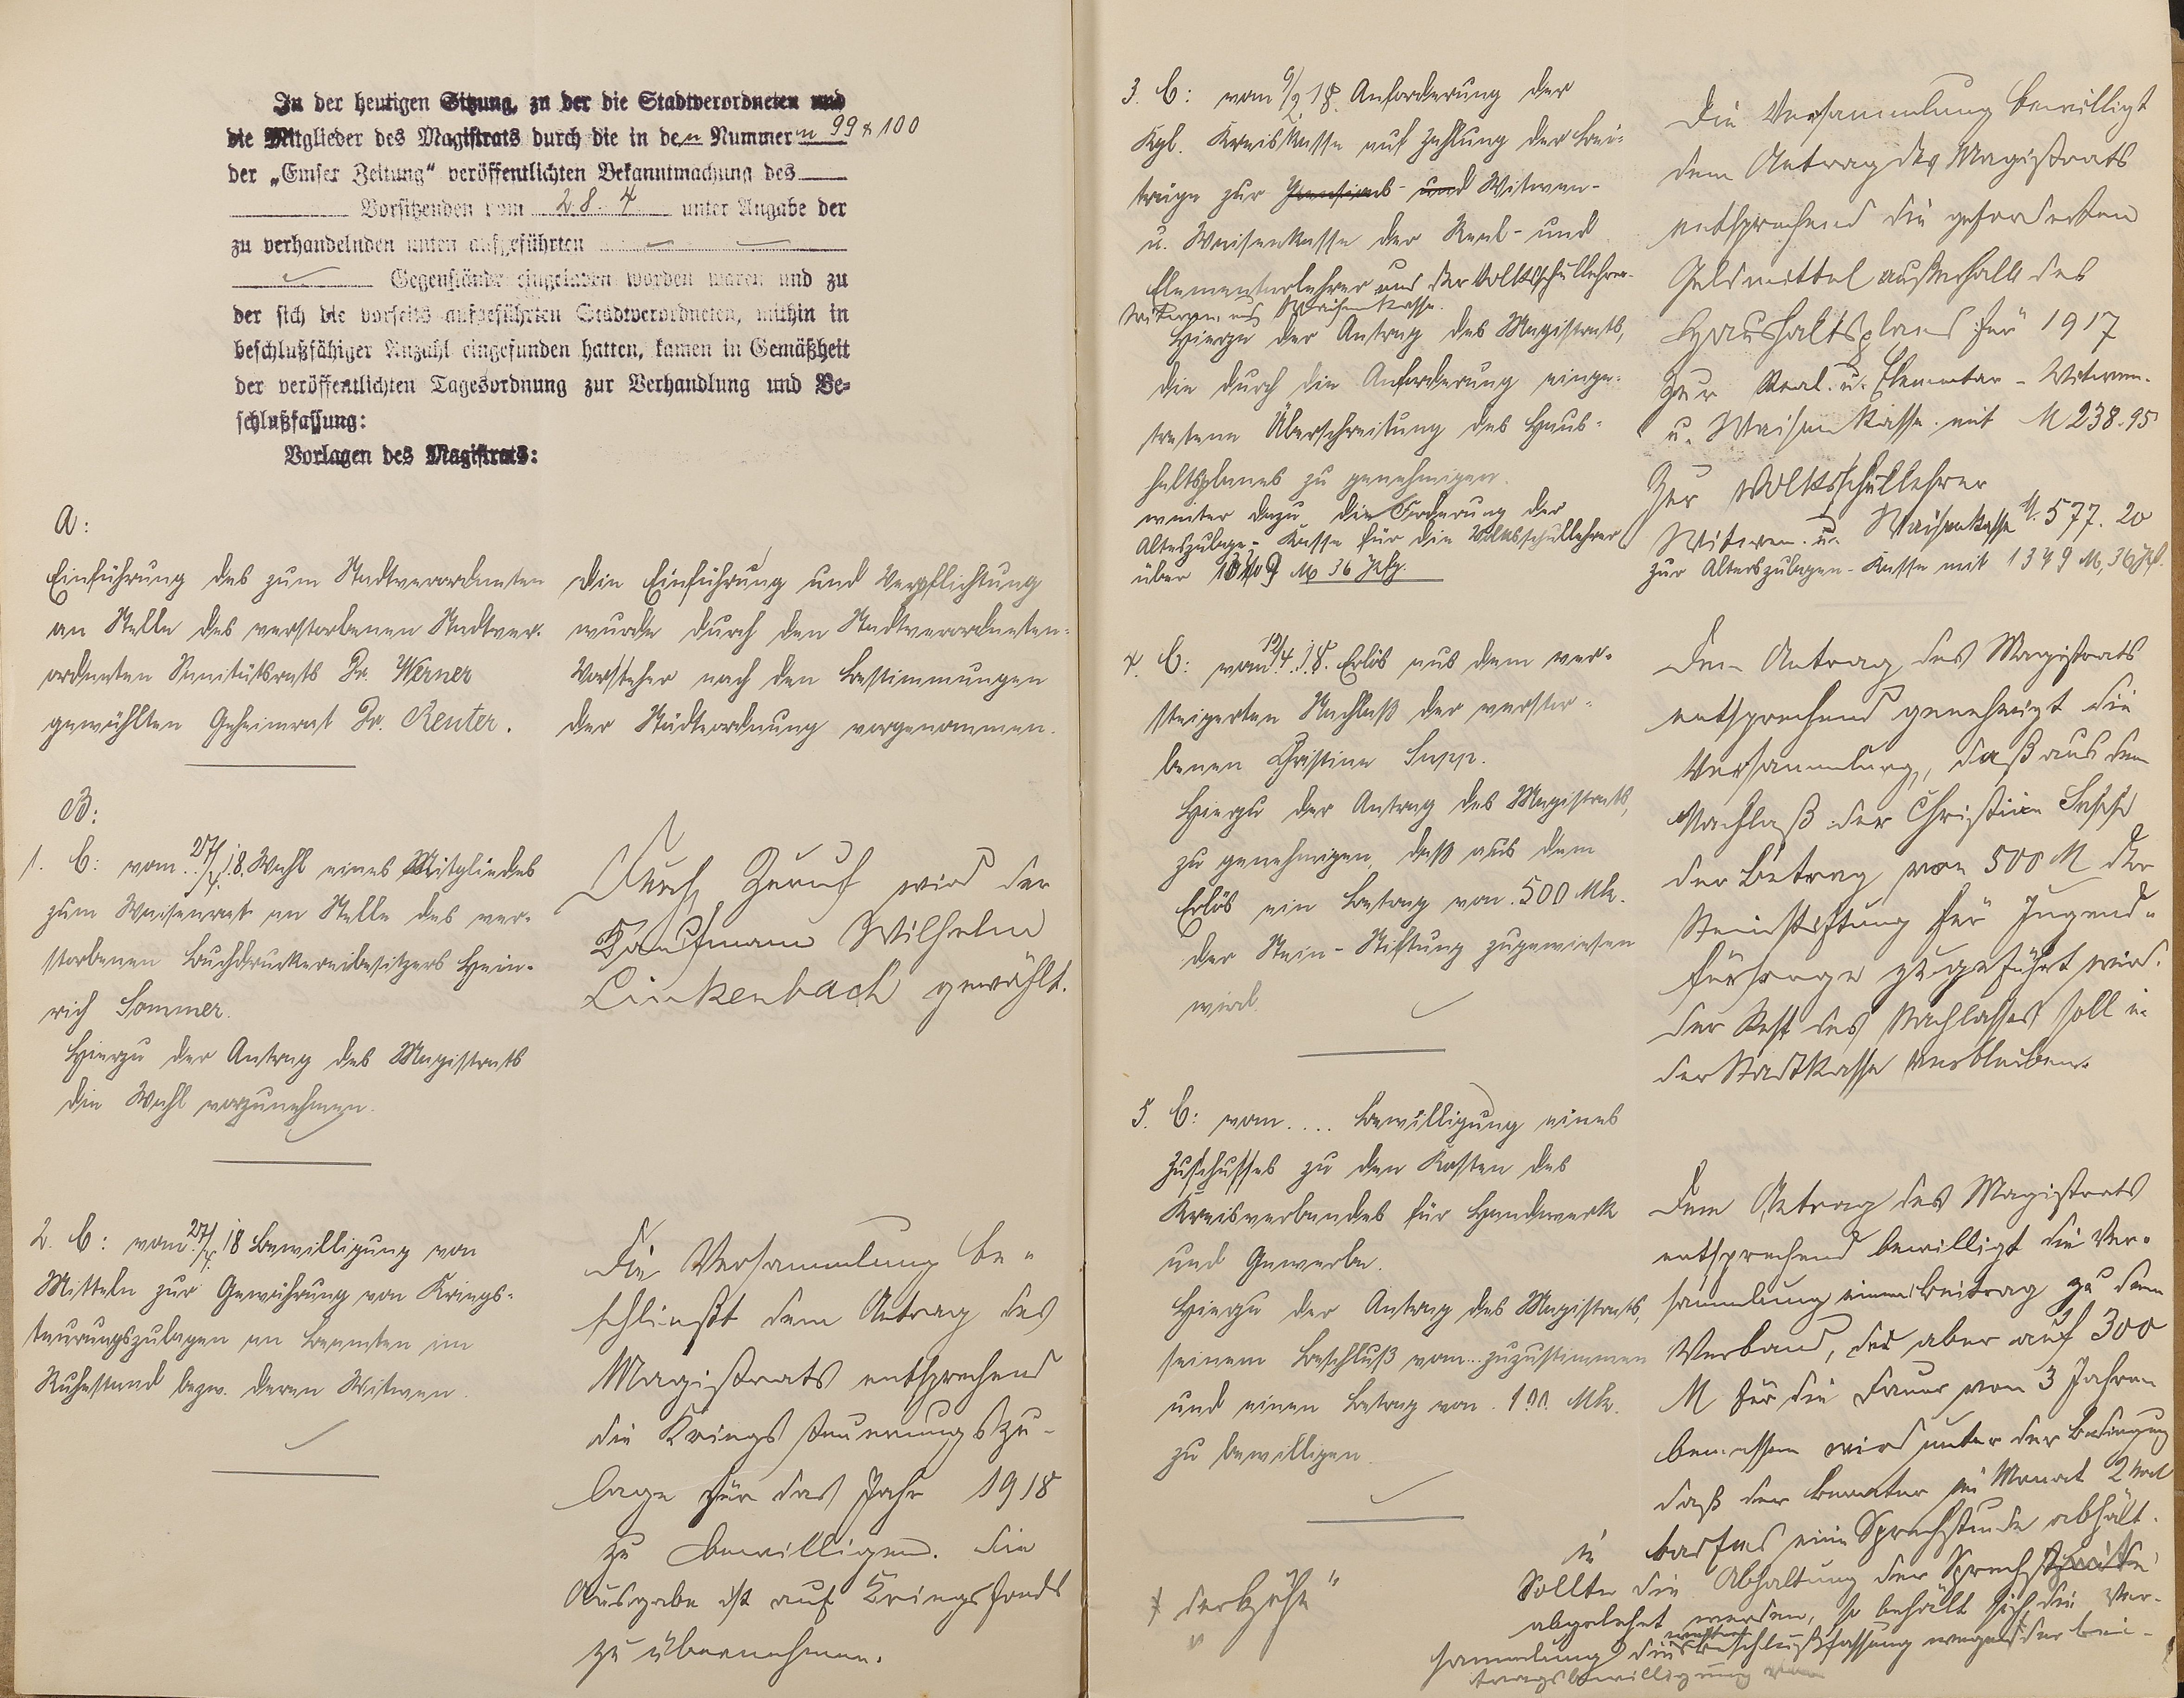 In der heutigen Sitzung, zu der die Stadtverordneten und
die Mitglieder des Magistrats durch die in den Nummern 99 & 100
der „Emser Zeitung“ veröffentlichten Bekanntmachung des
Vorsitzenden vom 28. 4 unter Angabe der
zu verhandelnden unten aufgeführten
Gegenstände eingeladen worden waren und zu
der sich die vorseits aufgeführten Stadtverordneten, mithin in
beschlußfähiger Anzahl eingefunden hatten, kamen in Gemäßheit
der veröffentlichten Tagesordnung zur Verhandlung und Be-
schlußfassung:
Vorlagen des Magistrats:
A:
Einführung des zum Stadtverordneten
an Stelle des verstorbenen Stadtver-
ordneten Sanitätsrats Dr. Werner
gewählten Geheimrat Dr. Reuter.
Die Einführung und Verpflichtung
wurde durch den Stadtverordneten-
Vorsteher nach den Bestimmungen
der Städteordnung vorgenommen.
B:
1. B: vom 27/4. 18. Wahl eines Mitgliedes
zum Waisenrat an Stelle des ver-
storbenen Buchdruckereibesitzers Hein-
rich Sommer.
Hierzu der Antrag des Magistrats
die Wahl vorzunehmen.
Durch Zuruf wird der
Kaufmann Wilhelm
Linkenbach gewählt.
2. B: vom 27/4. 18 Bewilligung von
Mitteln zur Gewährung von Kriegs-
teurungszulagen an Beamten im
Ruhestand bezw. deren Witwen.
Die Versammlung be-
schließt dem Antrag des
Magistrats entsprechend
die Kriegsteuerungszu-
lage für das Jahr 1918
zu bewilligen. Die
Ausgabe ist auf Kriegsfonds
zu übernehmen.
3. B: vom 9/2 18. Anforderung der
Kgl. Kreiskasse auf Zahlung der Bei-
träge zur Pensions- und Witwen-
u. Waisenkasse der Real- und
Elementarlehrer und der Volksschullehrer-
Witwen und Waisenkasse.
Hierzu der Antrag des Magistrats,
die durch die Anforderung einge-
tretene Überschreitung des Haus-
haltsplanes zu genehmigen.
weiter dazu die Forderung der
Alterszulage-Kasse für die Volksschullehrer
über 1349 M 36 Pfg.
Die Versammlung bewilligt
dem Antrag des Magistrats
entsprechend die geforderten
Geldmittel außerhalb des
Haushaltsplans für 1917
zur Real- u. Elementar-Witwen-
u. Waisenkasse mit M 238.95
Zur Volksschullehrer
Witwen- u. Waisenkasse M. 577.20
zur Alterszulagen-Kasse mit 1349 M, 36 Pf.
4. B: vom 12/4. 18. Erlös aus dem ver-
steigerten Nachlaß der verstor-
benen Christine Supp.
Hierzu der Antrag des Magistrats,
zu genehmigen, daß aus dem
Erlös ein Betrag von 500 Mk.
der Stein-Stiftung zugewiesen
wird.
Dem Antrag des Magistrats
entsprechend genehmigt die
Versammlung, daß aus dem
Nachlaß der Christine
der Betrag von 500 M der
Steinstiftung für Jugend-
fürsorge zugeführt wird.
Der Rest des Nachlasses soll in
der Stadtkasse verbleiben.
5. B: vom .... Bewilligung eines
Zuschusses zu den Kosten des
Kreisverbandes für Handwerk
und Gewerbe.
Hierzu der Antrag des Magistrats,
seinem Beschluß vom ... zuzustimmen
und einen Betrag von 100 Mk.
zu bewilligen.
Dem Antrag des Magistrats
entsprechend bewilligt die Ver-
sammlung einen Beitrag zu dem
Verband, der aber auf 300
M für die Dauer von 3 Jahren
bemessen wird unter der Bedingung
daß der Beamter im Monat 2 mal
in Bad Ems eine Sprechstunde abhält.
Sollte die Abhaltung der Sprechstunde
abgelehnt werden, so behält sich die Ver-
sammlung die weitere Beschlußfassung wegen der Bei-
tragsbewilligung